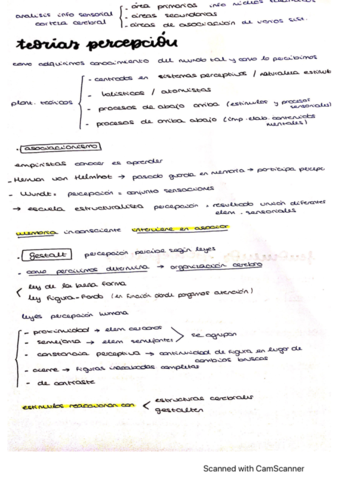 analisis info sensorial
corteza cerebral
- área primarias info
- áreas secundarias
- áreas de asociación de varios sist.
teorías percepción
como adquirimos conocimiento del mundo tal y como lo percibimos
plant. teóricos
- centrados en sistemas perceptivos / naturaleza estímulo
- holísticos / atomistas
- procesos de abajo arriba (estímulos y procesos sensoriales)
- procesos de arriba abajo (imp. elab. contenidos mentales)
· asociacionismo
empiristas conocer es aprender
- Herman van Helmhot → pasado guarda en memoria → participa percep.
- Wundt = percepción = conjunto sensaciones
→ escuela estructuralista percepción = resultado unión diferentes elem. sensoriales
memoria inconsciente interviene en asociar
· gestalt percepción parcial según leyes
- como percibimos determina → organización cerebro
ley de la buena forma
ley figura-fondo (en función donde pongamos atención)
leyes percepción humana
- proximidad → elem cercanos
- semejanza → elem semejantes
se agrupan
- constancia perceptiva → continuidad de figura en lugar de cambios bruscos
- cierre → figuras inacabadas completas
- de contraste
estímulos reaccionan con
estructuras cerebrales
gestalten
Scanned with CamScanner